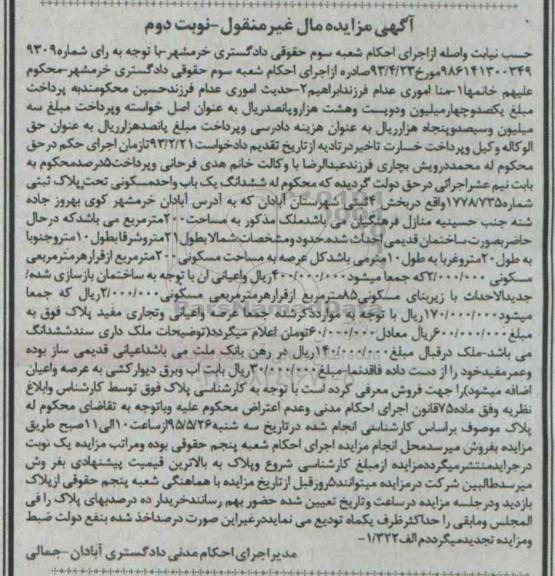 آگهی مزایده مال غیر منقول-نوبت دوم
حسب نیابت واصله ازاجرای احکام شعبه سوم حقوقی دادگستری خرمشهر-با توجه به رای شماره۹۳۰۹
۹۸۶۱۴۱۳۰۰۳۴۹مورخ۹۳/۴/۲۳صادره ازاجرای احکام شعبه سوم حقوقی دادگستری خرمشهر-محکوم
علیهم خانمها۱-منا اموری عدام فرزندابراهیم۲-حدیث اموری عدام فرزندحسین محکومندبه پرداخت
مبلغ یکصدوچهارمیلیون ودویست وهشت هزاروپانصدریال به عنوان اصل خواسته وپرداخت مبلغ سه
میلیون وسیصدوپنجاه هزارریال به عنوان هزینه دادرسی وپرداخت مبلغ پانصدهزارریال به عنوان حق
الوکاله وکیل وپرداخت خسارت تاخیرتادیه ازتاریخ تقدیم دادخواست۹۳/۲/۲۱تازمان اجرای حکم درحق
محکوم له محمددرویش بچاری فرزندعبدالرضا با وکالت خانم هدی فرحانی وپرداخت۵درصدمحکوم به
بابت نیم عشراجرائی درحق دولت گردیده که محکوم له ششدانگ یک باب واحدمسکونی تحت پلاک ثبتی
شماره۱۷۷۸/۷۳۵واقع دربخش۴ثبتی شهرستان آبادان که به آدرس آبادان خرمشهر کوی بهروز جاده
شته جنب حسینیه منازل فرهنگیان می باشدملک مذکور به مساحت۲۰۰مترمربع می باشدکه درحال
حاضربصورت ساختمان قدیمی احداث شده.حدودومشخصات:شمالابطول۲۱متروشرقابطول۱۰متروجنوبا
به طول۲۰متروغربا به طول۱۰مترمی باشدکل عرصه به مساحت مسکونی۲۰۰مترمربع ازقرارهرمترمربعی
مسکونی ۲/۰۰۰/۰۰۰که جمعا میشود۴۰۰/۰۰۰/۰۰۰ریال واعیانی ان با توجه به ساختمان بازسازی شده/
جدیدالاحداث با زیربنای مسکونی۸۵مترمربع ازقرارهرمترمربعی مسکونی۲/۰۰۰/۰۰۰ریال که جمعا
میشود۱۷۰/۰۰۰/۰۰۰ریال با توجه به مواردذکرشده جمعا عرصه واعیانی وتجاری مفید پلاک فوق به
مبلغ۶۰۰/۰۰۰/۰۰۰ریال معادل۶۰/۰۰۰/۰۰۰تومان اعلام میگردد(توضیحات ملک داری سندششدانگ
می باشد-ملک درقبال مبلغ۱۴۰/۰۰۰/۰۰۰ریال در رهن بانک ملت می باشداعیانی قدیمی ساز بوده
وعمرمفیدخود را از دست داده فاقدنما-مبلغ۳۰/۰۰۰/۰۰۰ریال بابت آب وبرق دیوارکشی به عرصه واعیان
اضافه میشود)را جهت فروش معرفی کرده است با توجه به کارشناسی پلاک فوق توسط کارشناس وابلاغ
نظریه وفق ماده۷۵قانون اجرای احکام مدنی وعدم اعتراض محکوم علیه وباتوجه به تقاضای محکوم له
پلاک موصوف براساس کارشناسی انجام شده درتاریخ سه شنبه۹۵/۵/۲۶ازساعت۱۰الی۱۱صبح طریق
مزایده بفروش میرسدمحل انجام مزایده اجرای احکام شعبه پنجم حقوقی بوده ومراتب مزایده یک نوبت
درجرایدمنتشرمیگرددمزایده ازمبلغ کارشناسی شروع وپلاک به بالاترین قیمت پیشنهادی بفر وش
میرسدطالبین شرکت درمزایده میتوانند۵روزقبل ازتاریخ مزایده با هماهنگی شعبه پنجم حقوقی ازپلاک
بازدید ودرجلسه مزایده درساعت وتاریخ تعیین شده حضور بهم رسانندخریدار ده درصدبهای پلاک را فی
المجلس ومابقی را حداکثرظرف یکماه تودیع می نمایددرغیراین صورت درصداخذ شده بنفع دولت ضبط
ومزایده تجدیدمیگرددم الف۱/۳۲۲-
مدیراجرای احکام مدنی دادگستری آبادان-جمالی